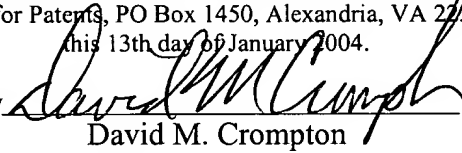 for Patents, PO Box 1450, Alexandria, VA 22
this 13th day of January 2004.
David M Crompton
David M. Crompton